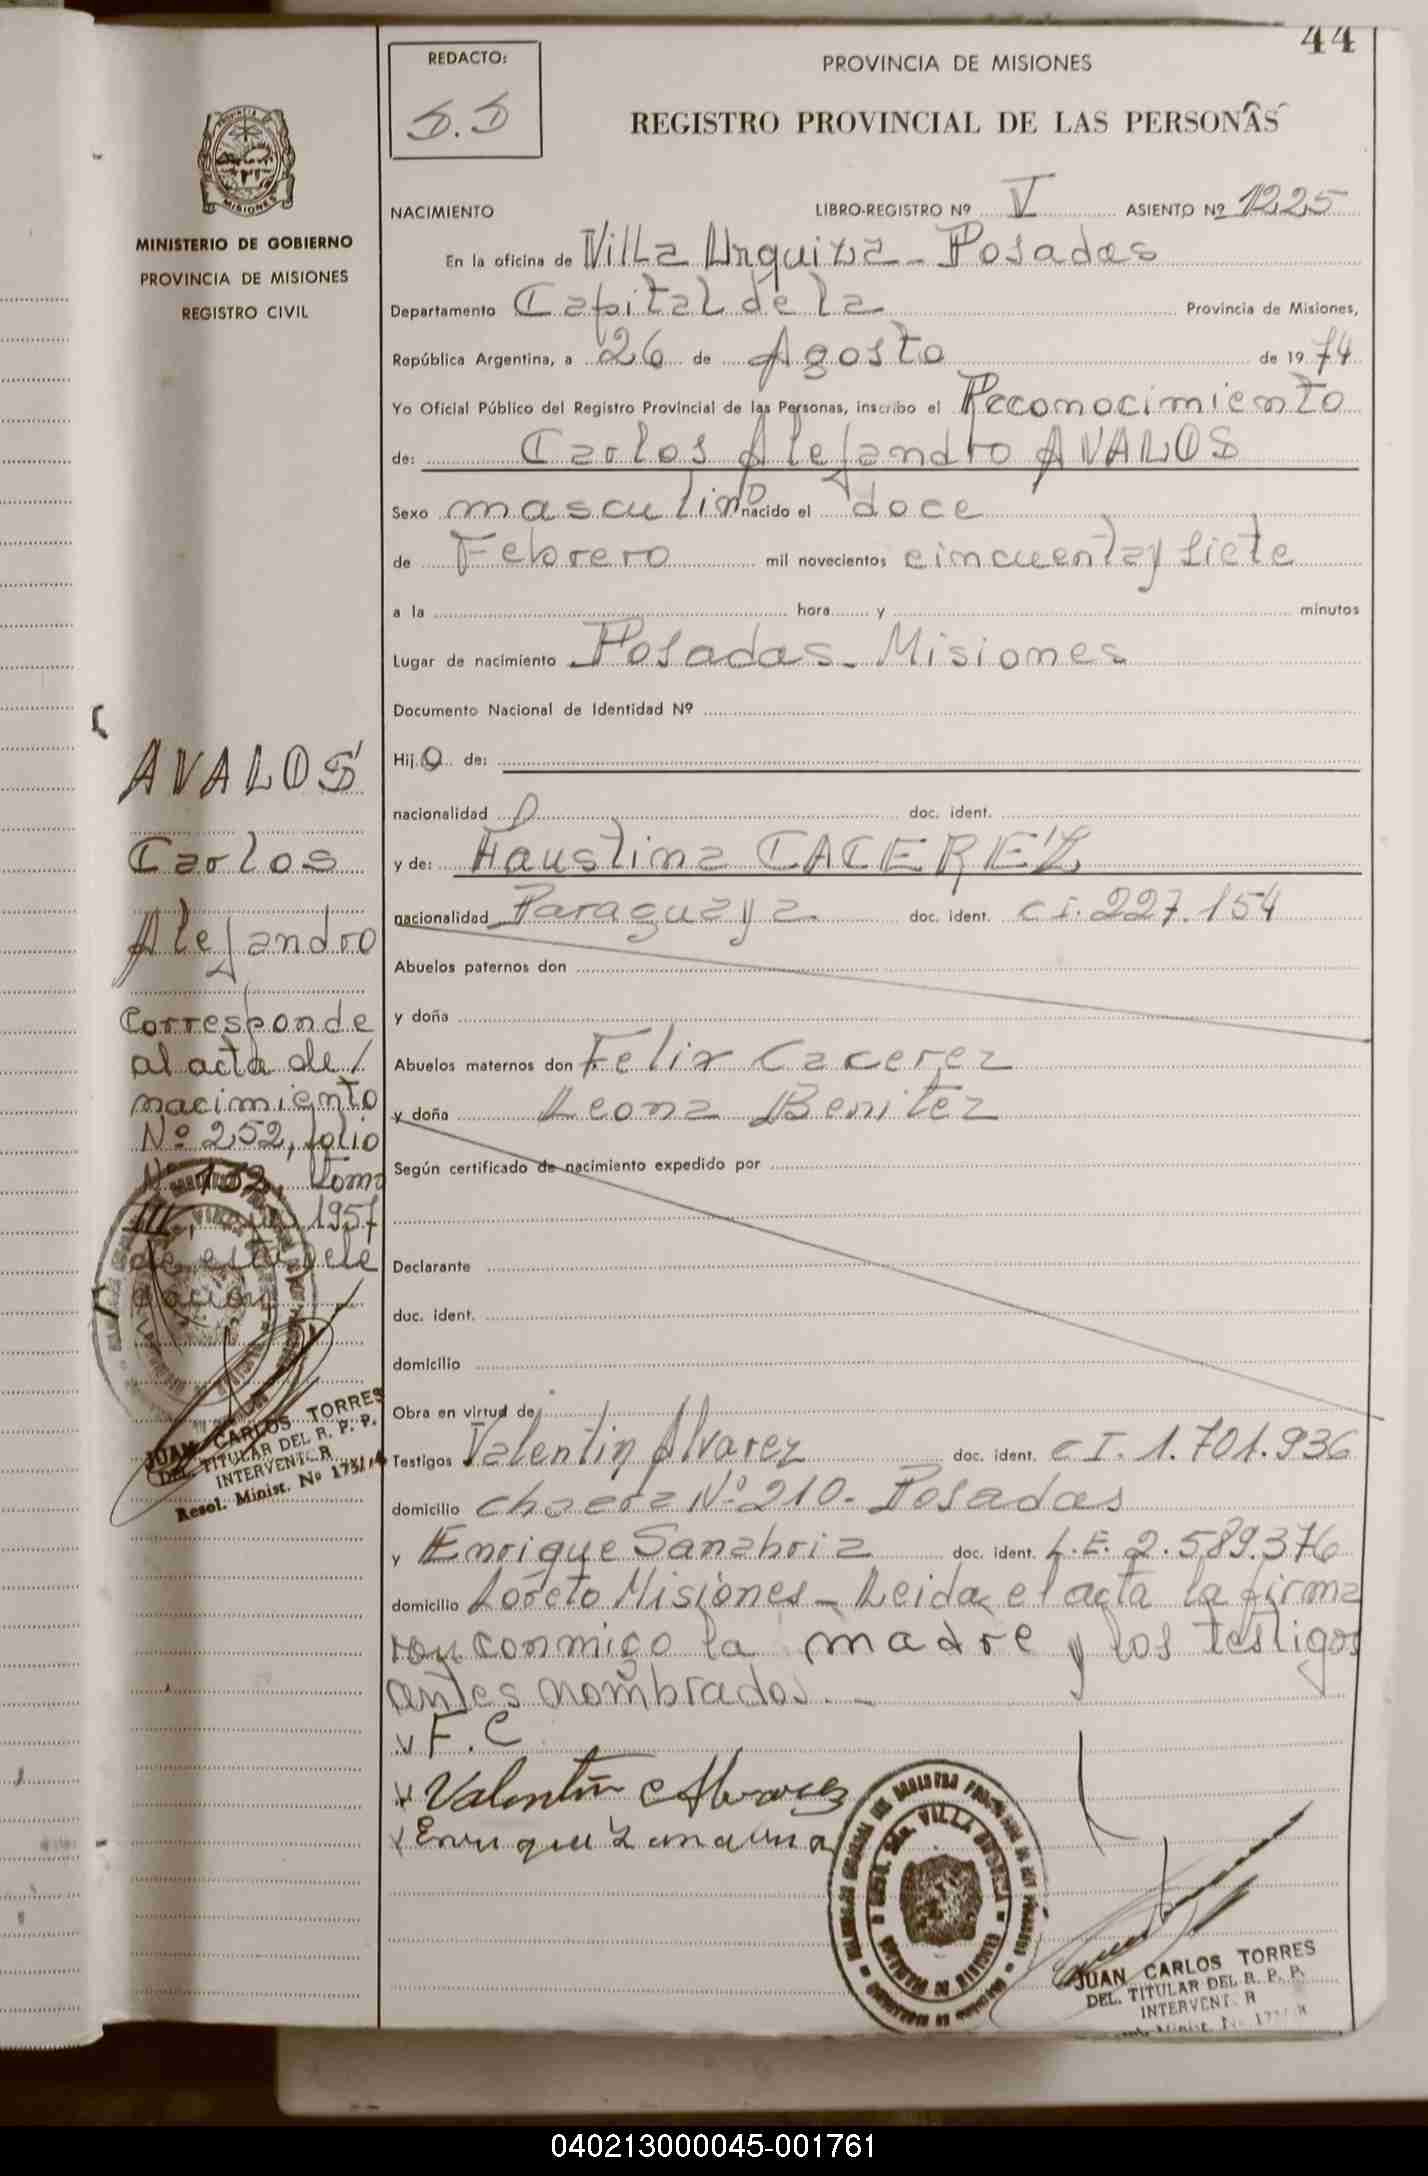 44
REDACTO:
S.S
PROVINCIA DE MISIONES
REGISTRO PROVINCIAL DE LAS PERSONAS
MISIONES
MINISTERIO DE GOBIERNO
PROVINCIA DE MISIONES
REGISTRO CIVIL
NACIMIENTO LIBRO-REGISTRO Nº V ASIENTO Nº 1225
En la oficina de Villa Urquiza - Posadas
Departamento Capital de la Provincia de Misiones,
República Argentina, a 26 de Agosto de 1974
Yo Oficial Público del Registro Provincial de las Personas, inscribo el Reconocimiento
de: Carlos Alejandro AVALOS
Sexo masculino nacido el doce
de Febrero mil novecientos cincuenta y siete
a la hora y minutos
Lugar de nacimiento Posadas - Misiones
Documento Nacional de Identidad Nº
Hijo de:
nacionalidad doc. ident.
y de: Faustina CACEREZ
nacionalidad Paraguaya doc. ident. C I. 227.154
Abuelos paternos don
y doña
Abuelos maternos don Felix Cacerez
y doña Leona Benitez
Según certificado de nacimiento expedido por
Declarante
doc. ident.
domicilio
Obra en virtud de
Testigos Valentin Alvarez doc. ident. C I. 1.701.936
domicilio chacra Nº 210 - Posadas
y Enrique Sanabria doc. ident. L.E. 2.589.376
domicilio Loreto Misiones - Leida el acta la firma
ron conmigo la madre y los testigos
antes nombrados. -
F.C
Valentin Alvarez
Enrique
AVALOS
Carlos
Alejandro
Corresponde
al acta de /
nacimiento
Nº 252, folio
Nº 132, Tomo
III, 1957
de esta dele
gacion
JUAN CARLOS TORRES
DEL. TITULAR DEL R. P. P.
INTERVENTOR
Resol. Minist. Nº 173/
VILLA URQUIZA
JUAN CARLOS TORRES
DEL. TITULAR DEL R. P. P.
INTERVENT R
040213000045-001761